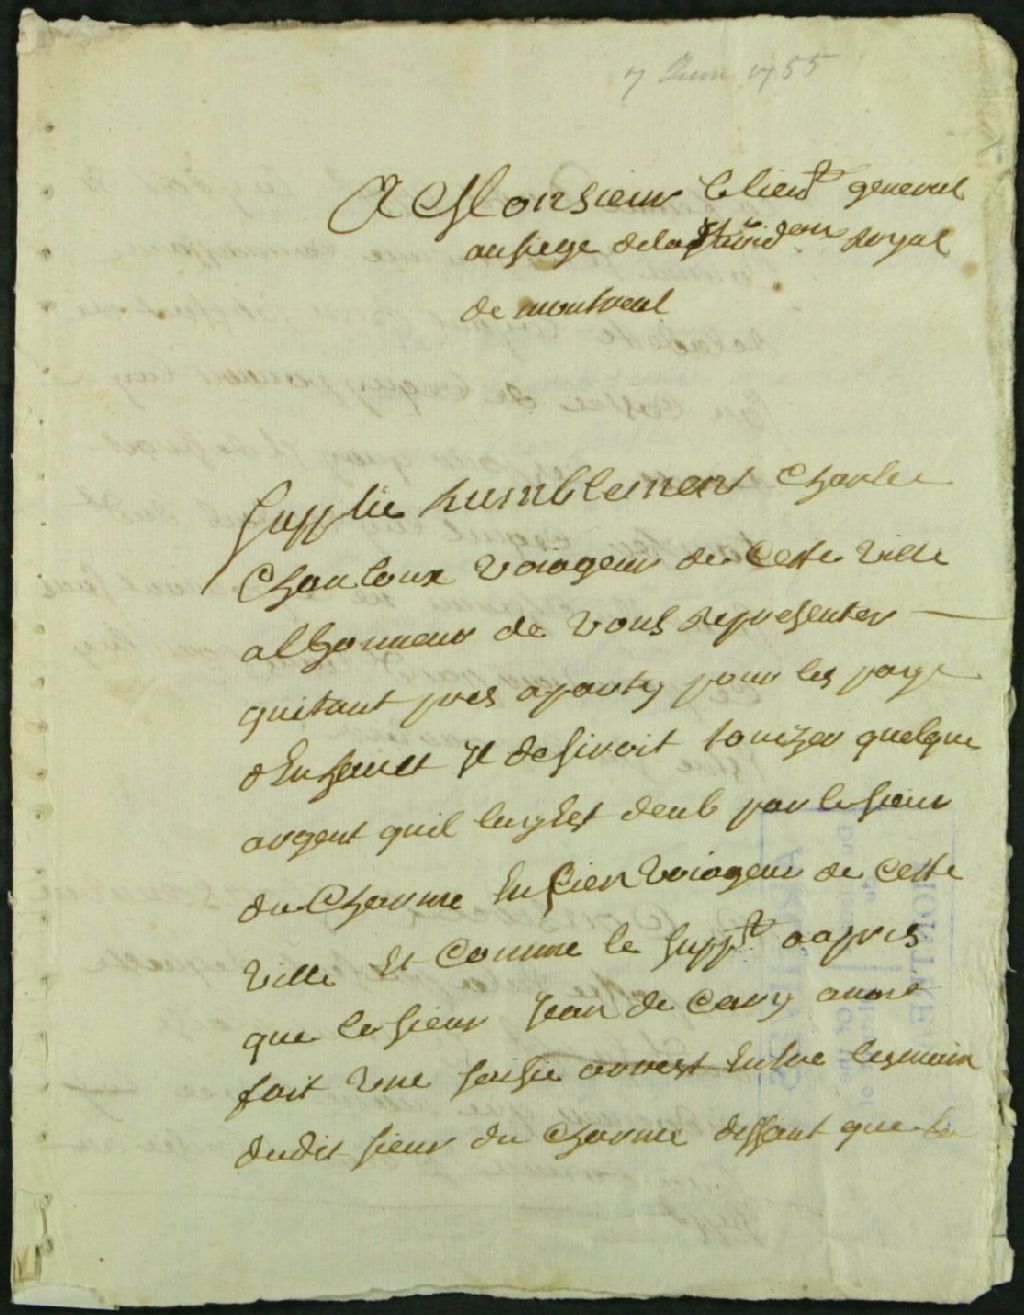 7 Juin 1755
A Monsieur le lieut general
au siege de la Jurid.on royal
de montreal
Supplie humblement Charles
voiageur de cette ville
alhonneur de vous representer
quetant pres aparty pour les pays
denhault Il desiroit touscher quelque
argent quil luy est deub par le sieur
du Charme Encien voiageur de cette
ville Et Comme le suppt. a apris
que le sieur Jean de auroit
fait une saisie arrest Entre les main
dudit sieur du Charme disfant que